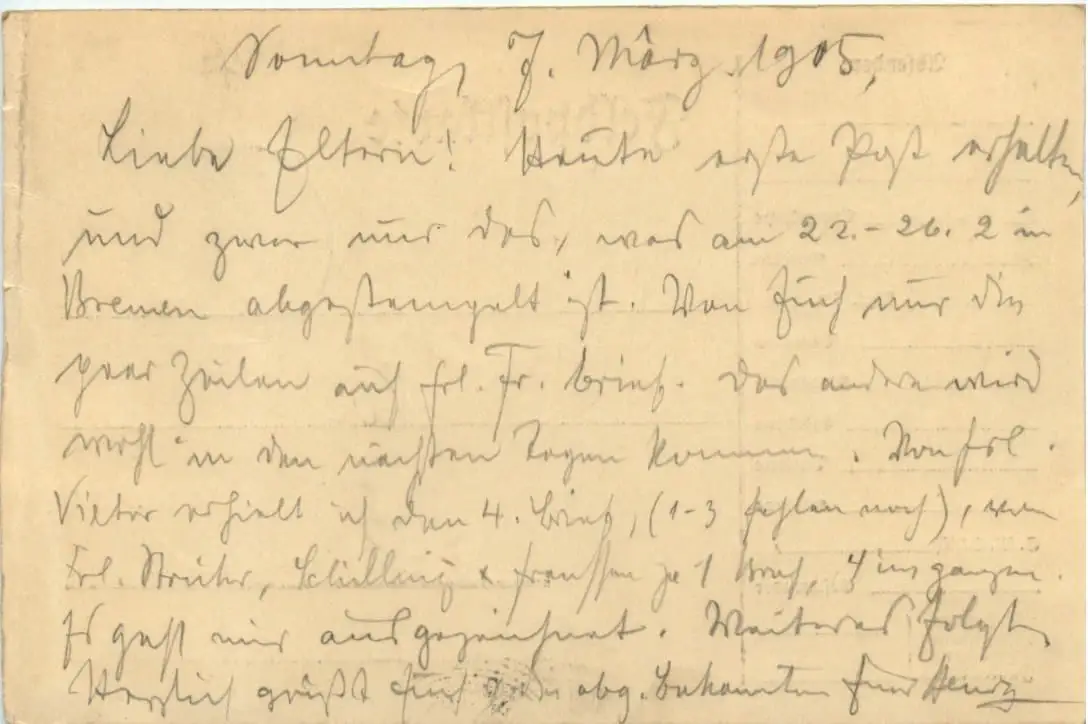 Sonntag, 7. März 1905,
Liebe Eltern! Heute erste Post erhalten,
und zwar nur das, was am 22.-26. 2 in
Bremen abgestempelt ist. Von Euch nur die
paar Zeilen auf Frl. Fr. Brief. Das andere wird
wohl in den nächsten Tagen kommen. Von Frl.
Vietor erhielt ich den 4. Brief, (1-3 fehlen noch), von
Frl. Schilling & Franssen je 1 Brief, 4 im ganzen.
Es geht mir ausgezeichnet. Weiteres folgt.
Herzlich grüßt Euch abg. Bekannten Euer Henry